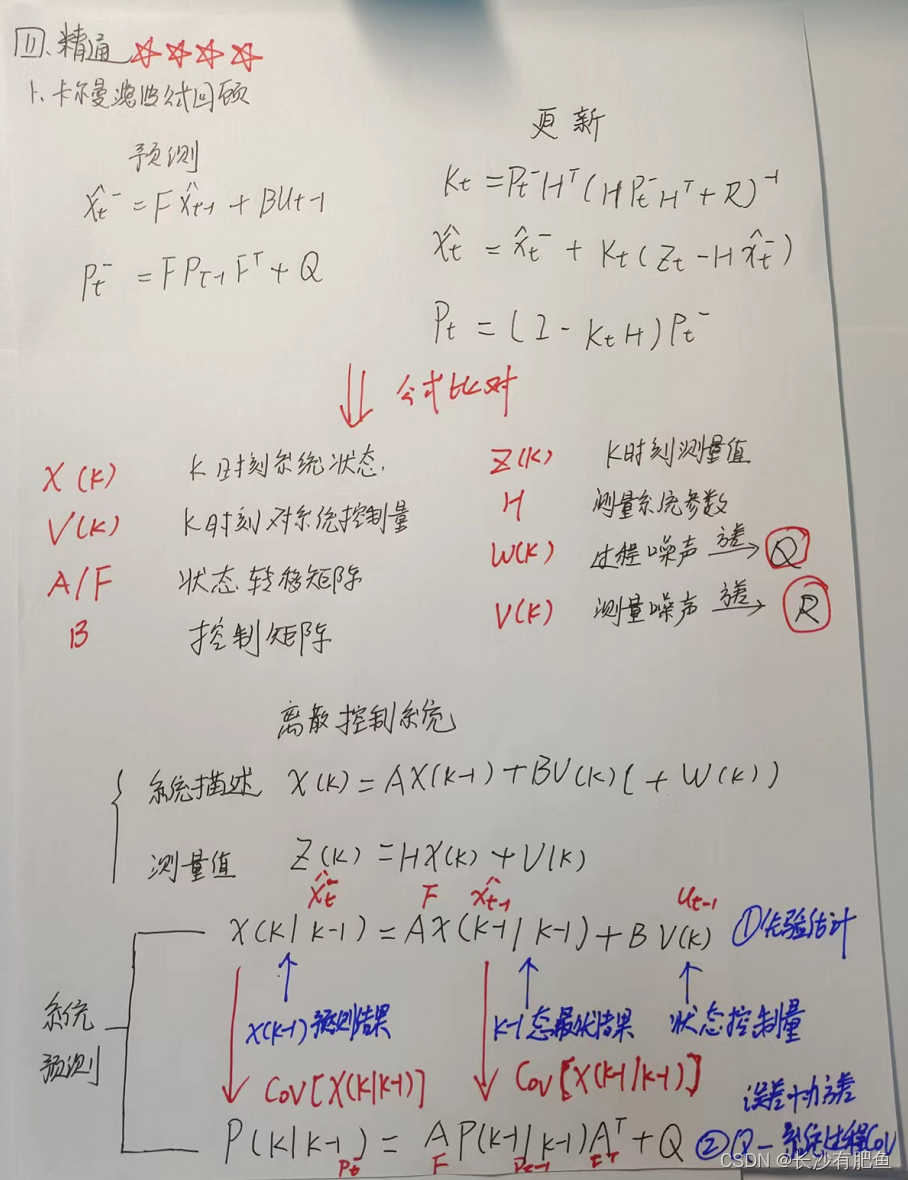 四、精通 ☆☆☆☆
1、卡尔曼滤波公式回顾
预测
X̂t⁻ = FX̂t-1 + BUt-1
Pt⁻ = FPT-1Fᵀ + Q
更新
Kt = Pt⁻Hᵀ(HPt⁻Hᵀ+R)⁻¹
X̂t = X̂t⁻ + Kt(Zt-HX̂t⁻)
Pt = (I-KtH)Pt⁻
公式比对
X(K) K时刻系统状态.
V(K) K时刻对系统控制量
A/F 状态转移矩阵
B 控制矩阵
Z(K) K时刻测量值
H 测量系统参数
W(K) 过程噪声 方差→ Q
V(K) 测量噪声 方差→ R
离散控制系统
系统描述 X(K)=AX(K-1)+BV(K)(+W(K))
测量值 Z(K)=HX(K)+V(K)
X̂t⁻ F X̂t-1 Ut-1
X(K|K-1)=AX(K-1|K-1)+BV(K) ①先验估计
系统
预测
X(K-1)预测结果 K-1态最优结果 状态控制量
COV[X(K|K-1)] COV[X(K-1|K-1)]
误差协方差
P(K|K-1)=AP(K-1|K-1)Aᵀ+Q ②Q-系统过程COV
Pt⁻ F Pt-1 Fᵀ
CSDN @长沙有肥鱼